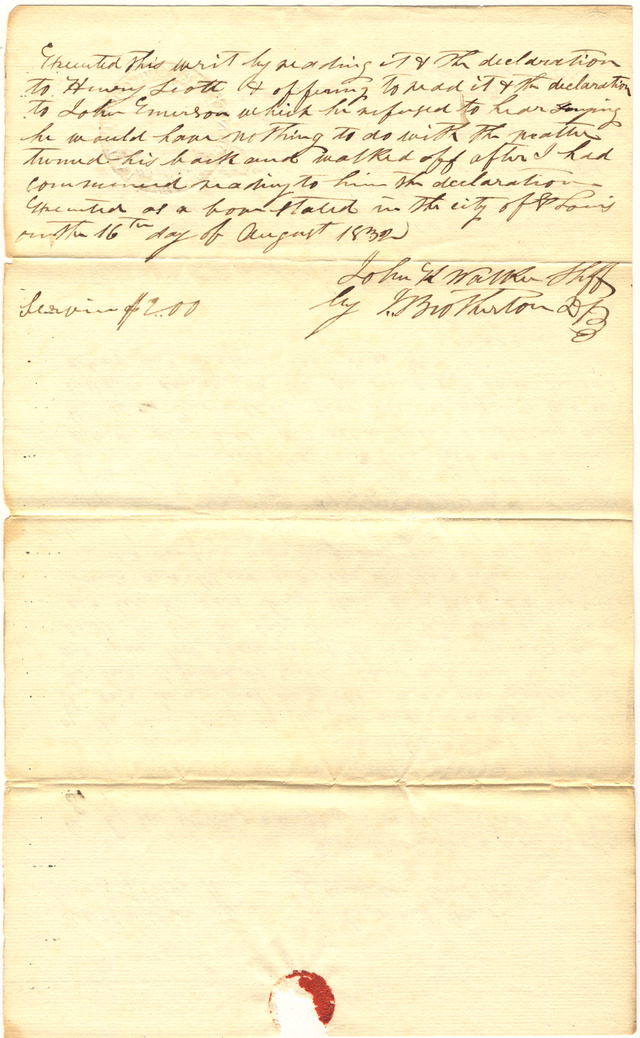 Executed this writ by reading it & the declaration
to Henry Scott & offering to read it & the declaration
to John Emerson which he refused to hear saying
he would have nothing to do with the matter
turned his back and walked off after I had
commenced reading to him the declaration
Executed as above stated in the city of St Louis
on the 16th day of August 1832
John K Walker Shff
Service $2.00 by J. Brotherton D S